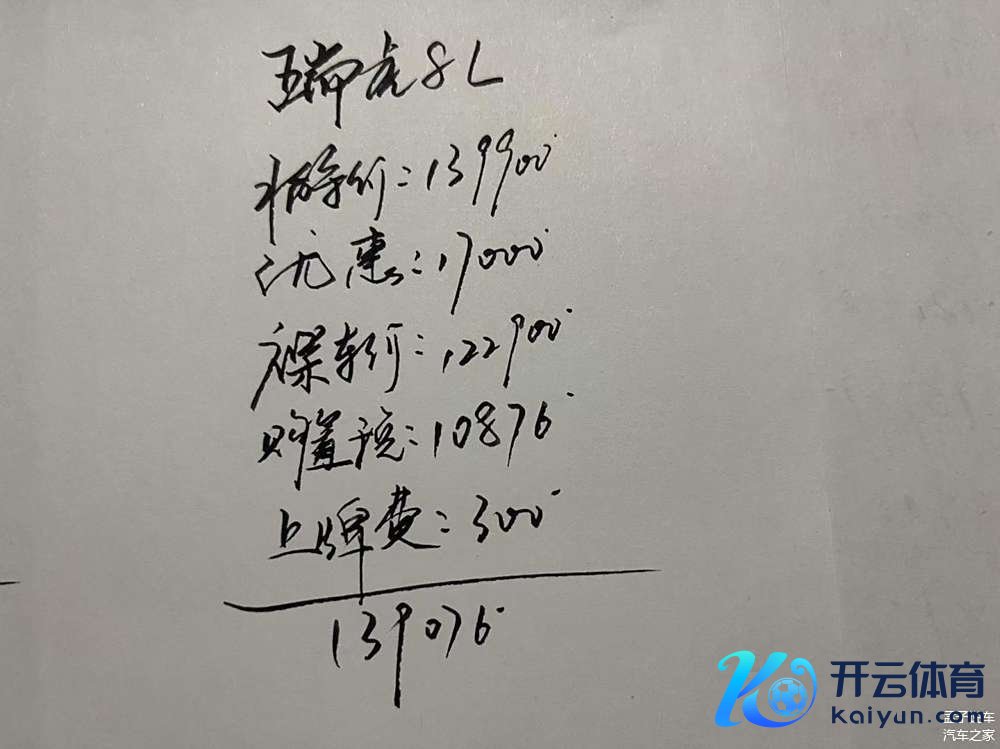 瑞虎8L
指导价:139900
优惠:17000
裸车价:122900
购置税:10876
上牌费:300
139076
开云体育
kaiyun.com
汽车之家